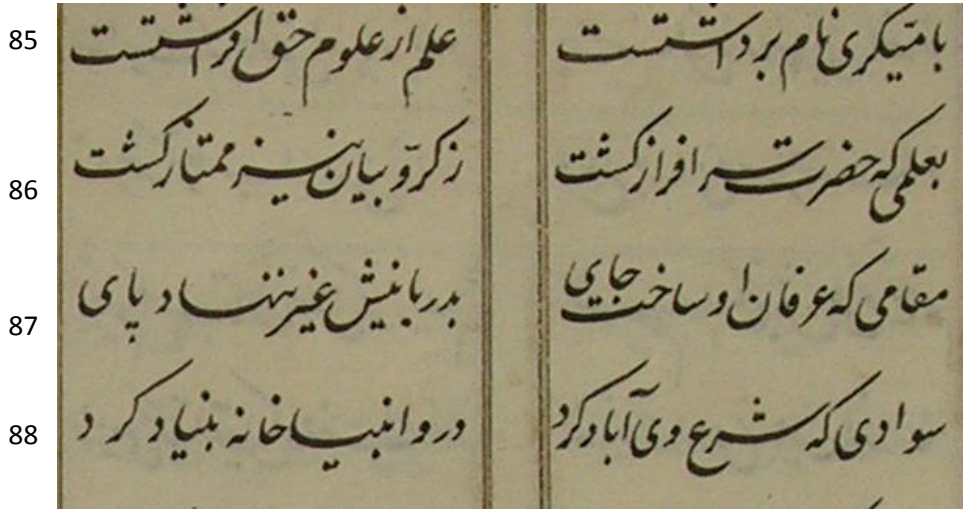 85 بامّیکری نام برداشتست علم از علوم حق افراشتست
86 بعلمی که حضرت سرافراز کشت ز کرّوبیان نیز ممتاز کشت
87 مقامی که عرفان او ساخت جای بدربانیش غیر ننهاد پای
88 سوادی که شرع وی آباد کرد درو انبیا خانه بنیاد کرد